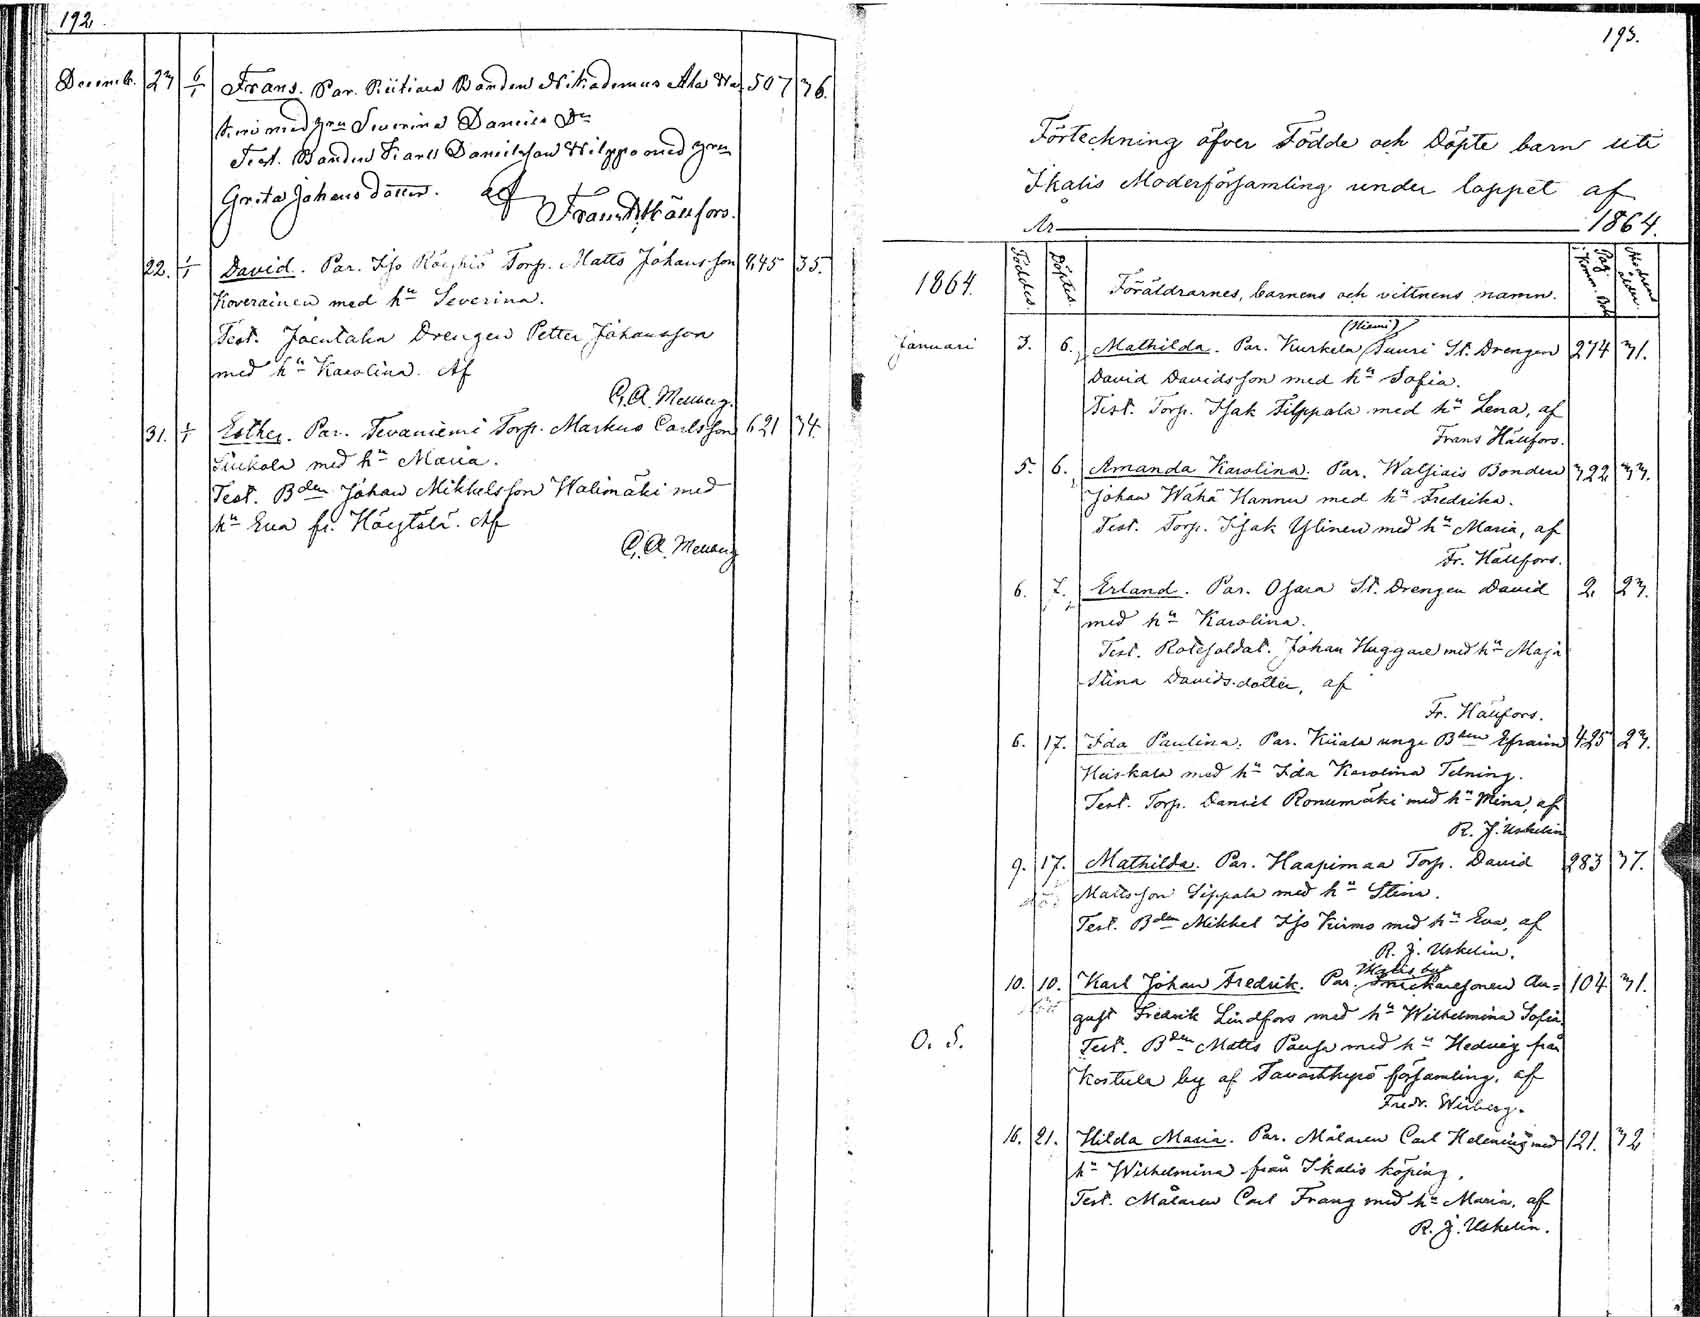 192
Decemb. 23 6/1 Frans. Par. Riitiala Bonden Nikodemus Aha Wa 507 36.
med hrn Severina Daniels Dr
Test. Bonden Frans Danielsson Hilppo med hrn
Greta Johans dotter. af
Frans Hällfors.
22. 1/1 David. Par. Iso Röyhiö Torp. Matts Johansson 845 35.
Koverainen med hu Severina.
Test. Drengen Petter Johansson
med hu Karolina. Af
C. A. Mellberg.
31. 1/1 Esther. Par. Tevaniemi Torp. Markus Carlsson 621 34.
med hu Maria.
Test. Bden Johan Mikkelsson Walimäki med
hu Eva fr. Höytölä. Af
C. A. Mellberg
193.
Förteckning öfver Födde och Döpte barn uti
Ikalis Moderförsamling under loppet af
År 1864.
1864. Föddes. Döptes. Föräldrarnes, barnens och vittnens namn. Pag. i Komm. Bok Modrens ålder.
(Niemi)
Januari 3. 6. Mathilda. Par. Kurkela Juuri St. Drengen 274 31.
David Davidsson med hu Sofia.
Test. Torp. Isak Filppala med hu Lena, af
Frans Hällfors.
5. 6. Amanda Karolina. Par. Walsiais Bonden 322 33.
Johan Wähä Hannu med hu Fredrika.
Test. Torp. Isak Ylinen med hu Maria, af
Fr. Hällfors.
6. 7. Erland. Par. Osara St. Drengen David 2 23.
med hu Karolina.
Test. Rotesoldat. Johan Huggare med hu Maja
Stina Davids.dotter, af
Fr. Hällfors.
6. 17. Ida Paulina. Par. Kiiala unge Bden Efraim 425 23.
Heiskala med hu Ida Karolina Telning.
Test. Torp. Daniel Ronumäki med hu Mina, af
R. J. Uskelin
9. 17. Mathilda. Par. Haapimaa Torp. David 283 37.
Mattsson Sippala med hu Stina.
Test. Bden Mikkel Iso Kirmo med hu Eva, af
R. J. Uskelin.
10. 10. Karl Johan Fredrik. Par. Snickaresonen Au= 104 31.
gust Fredrik Lindfors med hu Wilhelmina Sofia.
O. S. Test. Bden Matts Pausa med hu Hedvig från
Kostula by af Tavastkyrö församling, af
Fredr. Weiberg.
16. 21. Hilda Maria. Par. Målaren Carl Helenius med 121. 32
hu Wilhelmina från Ikalis köping.
Test. Målaren Carl Frang med hu Maria, af
R. J. Uskelin.